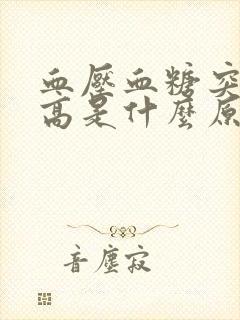 血壓血糖突
高是什麼原
音塵寂